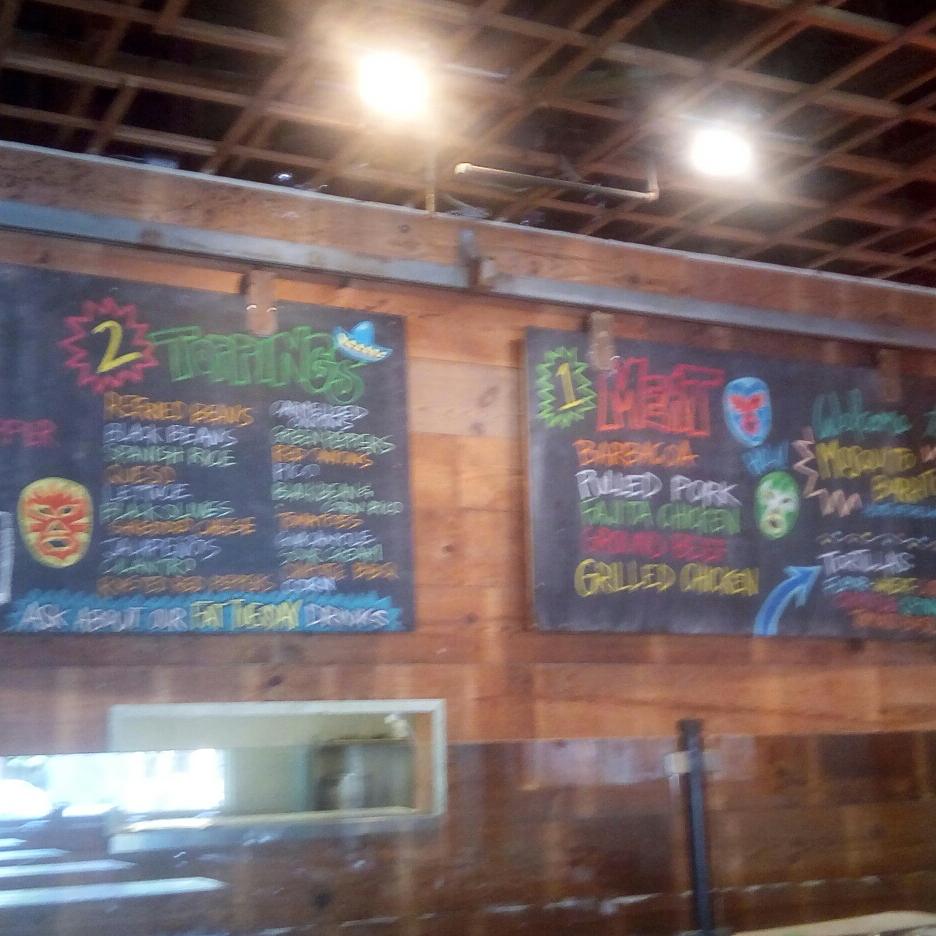 2 TOPPINGS
REFRIED BEANS
BLACK BEANS
SPANISH RICE
QUESO
LETTUCE
BLACK OLIVES
SHREDDED CHEESE
JALAPENOS
CILANTRO
ROASTED RED PEPPERS
GREEN PEPPERS
RED ONIONS
PICO
TOMATOES
GUACAMOLE
SOUR CREAM
CORN
ASK ABOUT OUR FAT TUESDAY DRINKS
1 MEAT
BARBACOA
PULLED PORK
FAJITA CHICKEN
GROUND BEEF
GRILLED CHICKEN
Welcome
MOSQUITO
TORTILLAS